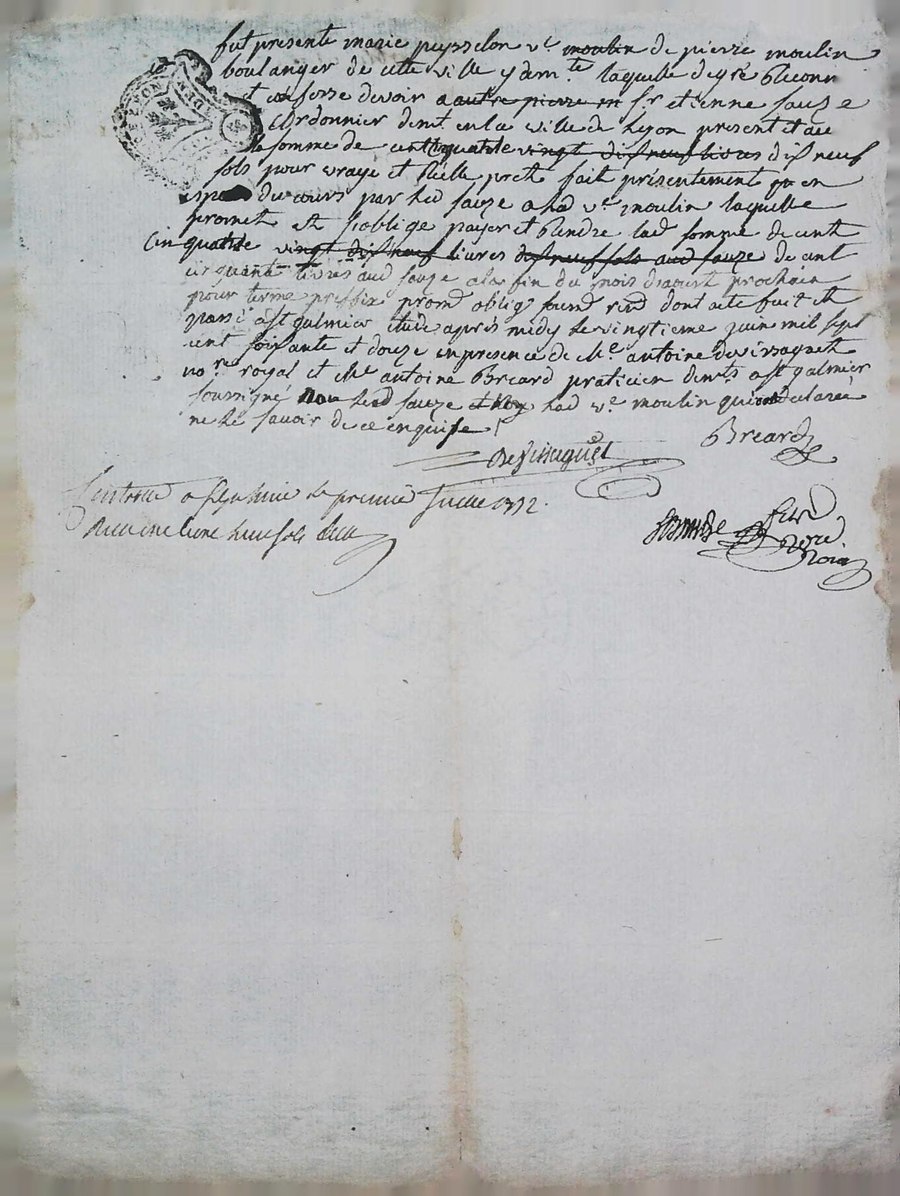 fut presente marie peysselon ve moulin de pierre moulin
boulanger de cette ville y dem.te laquelle de gré Reconn
et confesse devoir a autre pierre sr etienne sauze
Cordonnier demt en la ville de Lyon present et acc
la somme de cent cinquante vingt dix neuf livres dix neuf
sols pour vraye et Reelle prest fait présentement en
du cours par led sauze a lad ve moulin laquelle
promet et s'oblige payer et Rendre lad somme de cent
Cinquante vingt dix neuf livres dix neuf sols aud sauze de cent
cinquante livres aud sauze a la fin du mois d'aoust prochain
pour terme prefix prom oblig soum ren dont acte fait et
passé a st galmier etude après midy le vingtieme juin mil sept
cent soixante et douze en presence de Me antoine devissaguet
no.re royal et Me antoine Breard praticien demts a st galmier
soussigné led sauze et non lad ve moulin qui a declarée
ne le savoir de ce enquise
Breard
Devissaguet
Controllé a st galmier le premier juillet 1772.
Reçu une livre neuf sols